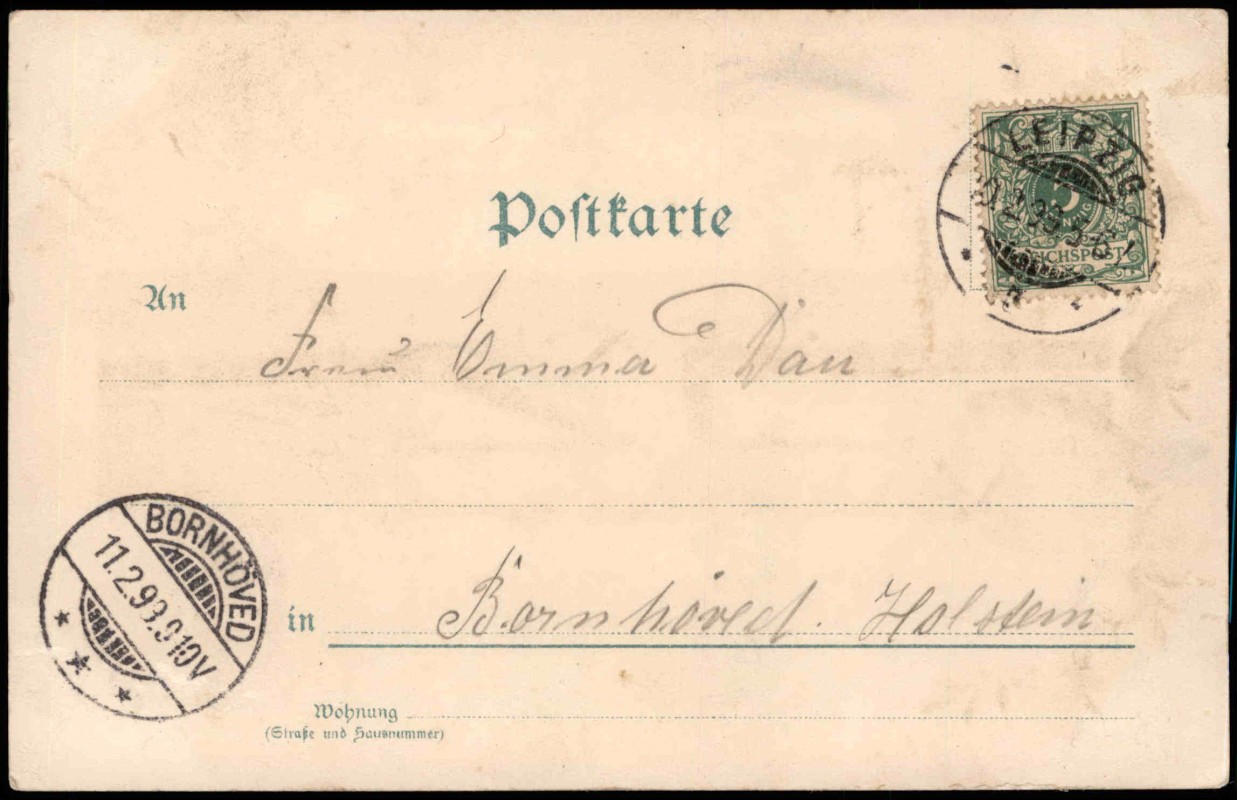 Postkarte
LEIPZIG
5
REICHSPOST
An
Frau Emma Dau
BORNHÖVED
11.2.93.9-10V
in Bornhöved. Holstein
Wohnung
(Straße und Hausnummer)